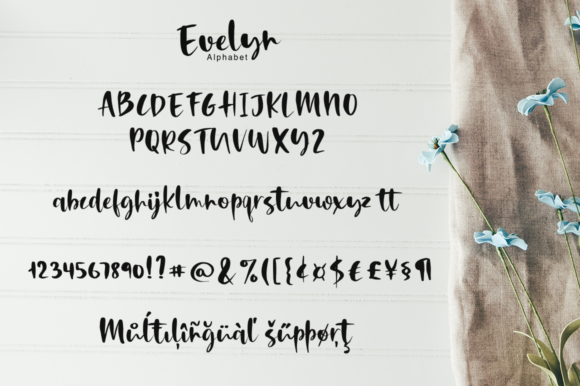 Evelyn
Alphabet
ABCDEFGHIJKLMNO
PQRSTUVWXYZ
abcdefghijklmnopqrstuvwxyz tt
1234567890!?#@&%([{¢¤$€£¥§¶
Můĺtıļîñğüàľ šűppøŗţ